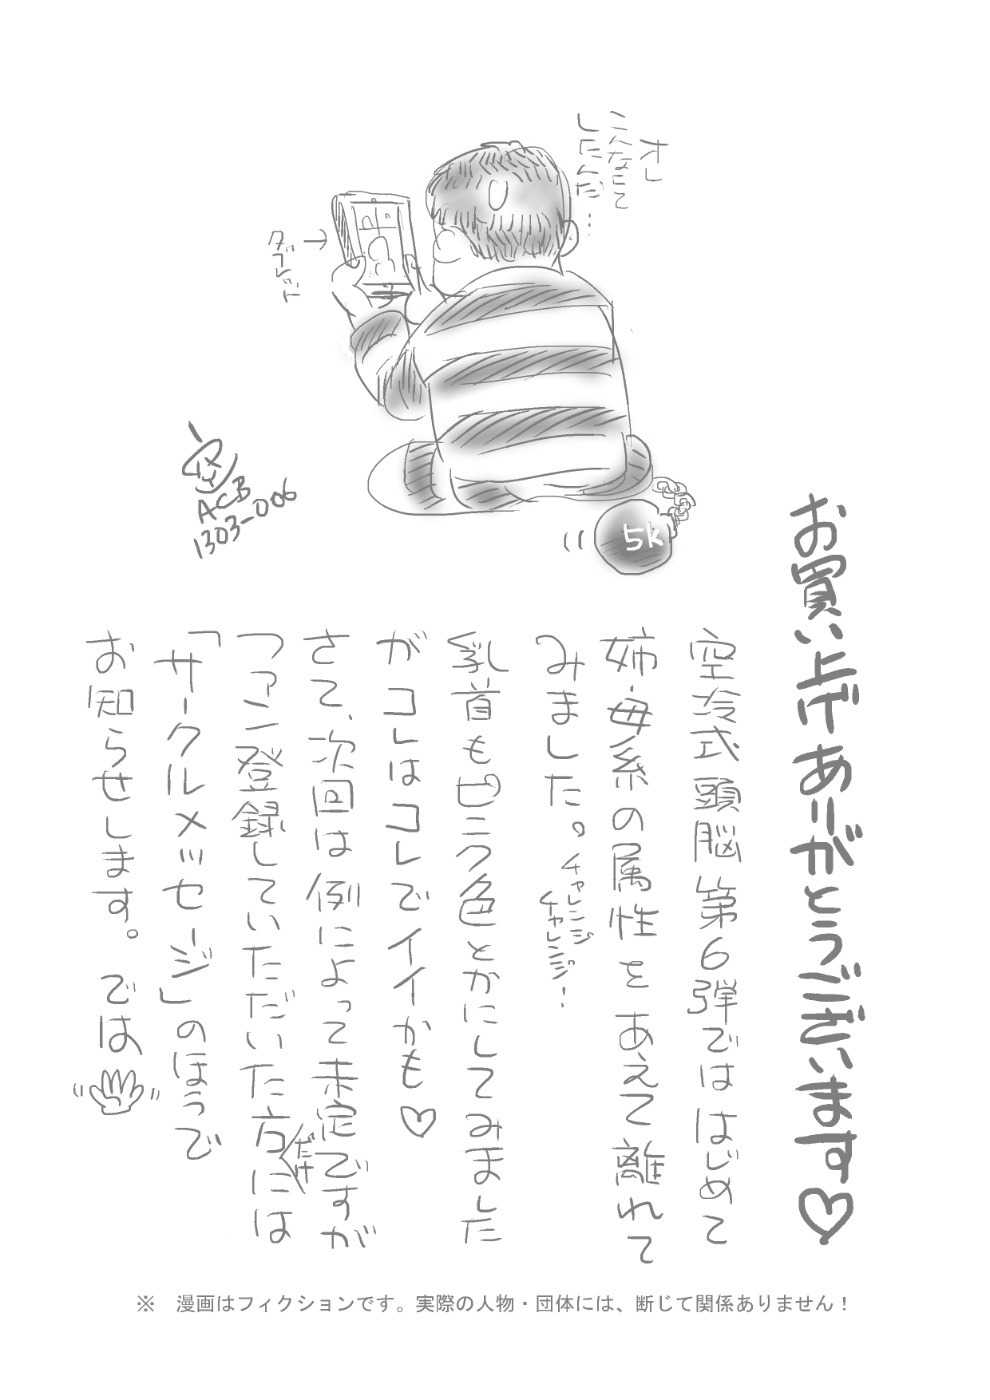 オレ
こんなにて
したんだ…
タブレット→
空
ACB
1303-006
5k
お買い上げありがとうございます♡
空冷式頭脳第6弾でははじめて
姉・母系の属性をあえて離れて
みました。チャレンジチャレンジ!
乳首もピンク色とかにしてみました
がコレはコレでイイかも♡
さて、次回は例によって未定ですが
ファン登録していただいた方だけには
「サークルメッセージ」のほうで
お知らせします。では、
※　漫画はフィクションです。実際の人物・団体には、断じて関係ありません!